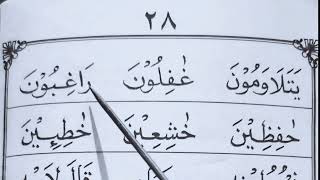 ٢٨
يَتَلَاوَمُوْنَ غٰفِلُوْنَ رَاغِبُوْنَ
حٰفِظِيْنَ خٰشِعِيْنَ خٰطِـِٕيْنَ